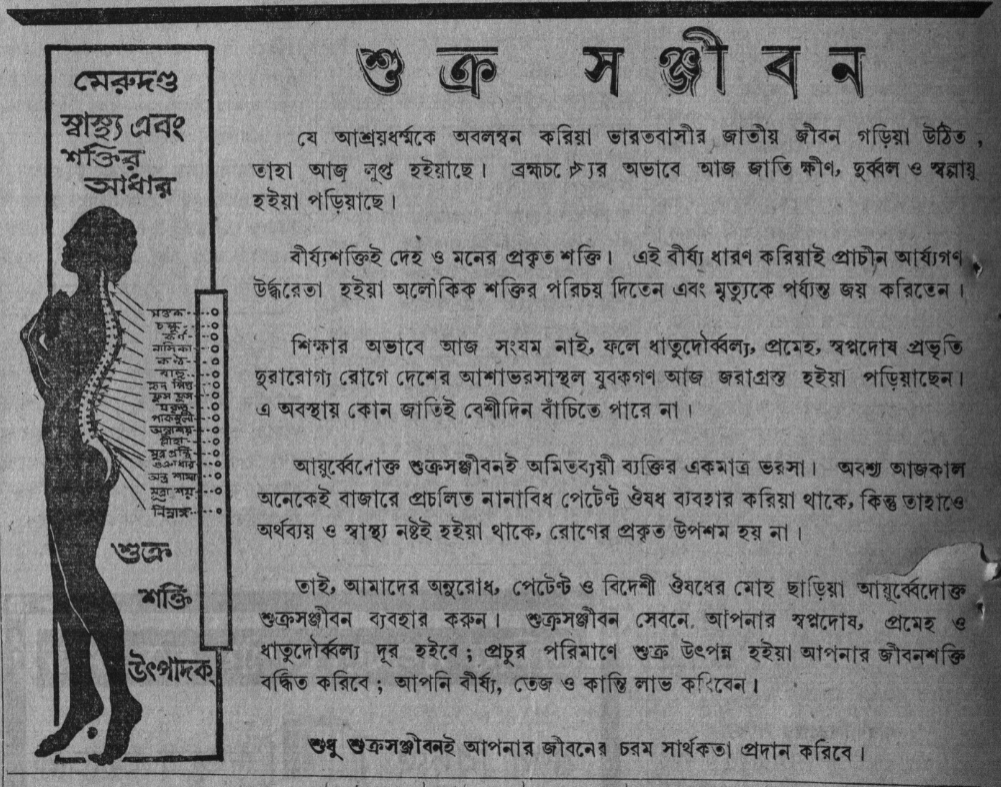 শুক্র সঞ্জীবন
মেরুদণ্ড
স্বাস্থ্য এবং
শক্তির
আধার
যে আশ্রয়ধর্ম্মকে অবলম্বন করিয়া ভারতবাসীর জাতীয় জীবন গড়িয়া উঠিত,
তাহা আজ লুপ্ত হইয়াছে। ব্রহ্মচর্য্যের অভাবে আজ জাতি ক্ষীণ, দুর্ব্বল ও স্বল্পায়ু
হইয়া পড়িয়াছে।
বীর্য্যশক্তিই দেহ ও মনের প্রকৃত শক্তি। এই বীর্য্য ধারণ করিয়াই প্রাচীন আর্য্যগণ
উর্দ্ধরেতা হইয়া অলৌকিক শক্তির পরিচয় দিতেন এবং মৃত্যুকে পর্য্যন্ত জয় করিতেন।
শিক্ষার অভাবে আজ সংযম নাই, ফলে ধাতুদৌর্ব্বল্য, প্রমেহ, স্বপ্নদোষ প্রভৃতি
দুরারোগ্য রোগে দেশের আশাভরসাস্থল যুবকগণ আজ জরাগ্রস্ত হইয়া পড়িয়াছেন।
এ অবস্থায় কোন জাতিই বেশীদিন বাঁচিতে পারে না।
আয়ুর্ব্বেদোক্ত শুক্রসঞ্জীবনই অমিতব্যয়ী ব্যক্তির একমাত্র ভরসা। অবশ্য আজকাল
অনেকেই বাজারে প্রচলিত নানাবিধ পেটেণ্ট ঔষধ ব্যবহার করিয়া থাকে, কিন্তু তাহাতে
অর্থব্যয় ও স্বাস্থ্য নষ্টই হইয়া থাকে, রোগের প্রকৃত উপশম হয় না।
তাই, আমাদের অনুরোধ, পেটেণ্ট ও বিদেশী ঔষধের মোহ ছাড়িয়া আয়ুর্ব্বেদোক্ত
শুক্রসঞ্জীবন ব্যবহার করুন। শুক্রসঞ্জীবন সেবনে আপনার স্বপ্নদোষ, প্রমেহ ও
ধাতুদৌর্ব্বল্য দূর হইবে; প্রচুর পরিমাণে শুক্র উৎপন্ন হইয়া আপনার জীবনশক্তি
বর্দ্ধিত করিবে; আপনি বীর্য্য, তেজ ও কান্তি লাভ করিবেন।
শুধু শুক্রসঞ্জীবনই আপনার জীবনের চরম সার্থকতা প্রদান করিবে।
মস্তক
চক্ষু
কর্ণ
নাসিকা
কণ্ঠ
বাহু
হৃদ পিণ্ড
ফুস ফুস
যকৃৎ
পাকস্থলী
অগ্ন্যাশয়
প্লীহা
মূত্র গ্রন্থি
শুক্রাধার
মূত্রাশয়
নিম্নাঙ্গ
শুক্র
শক্তি
উৎপাদক